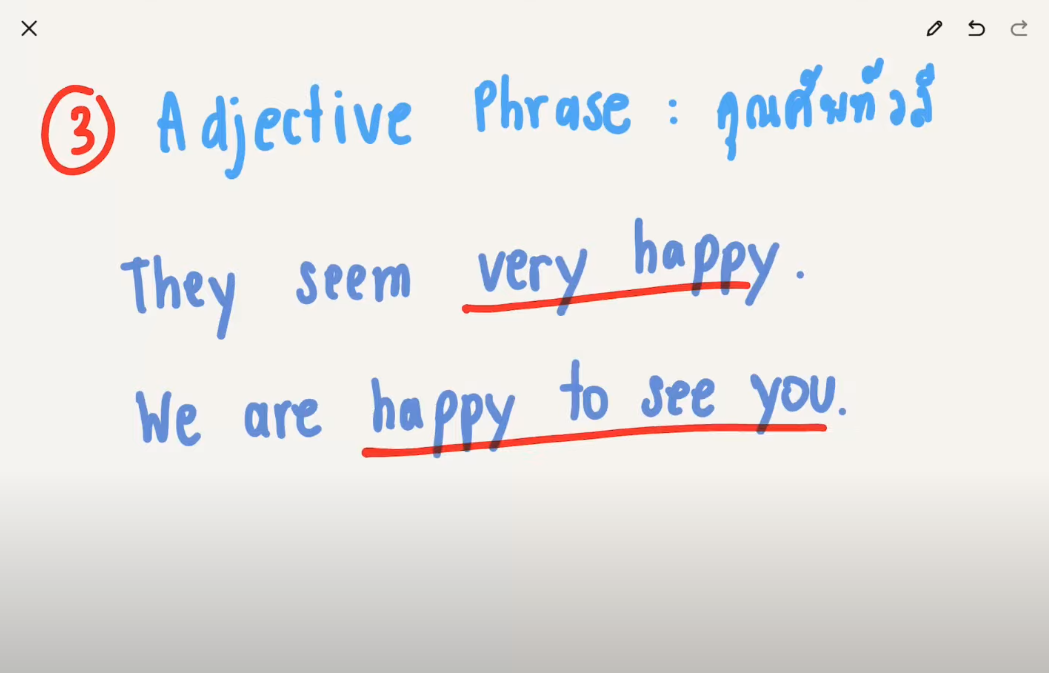 3 Adjective Phrase : คุณศัพท์วลี
They seem very happy.
We are happy to see you.